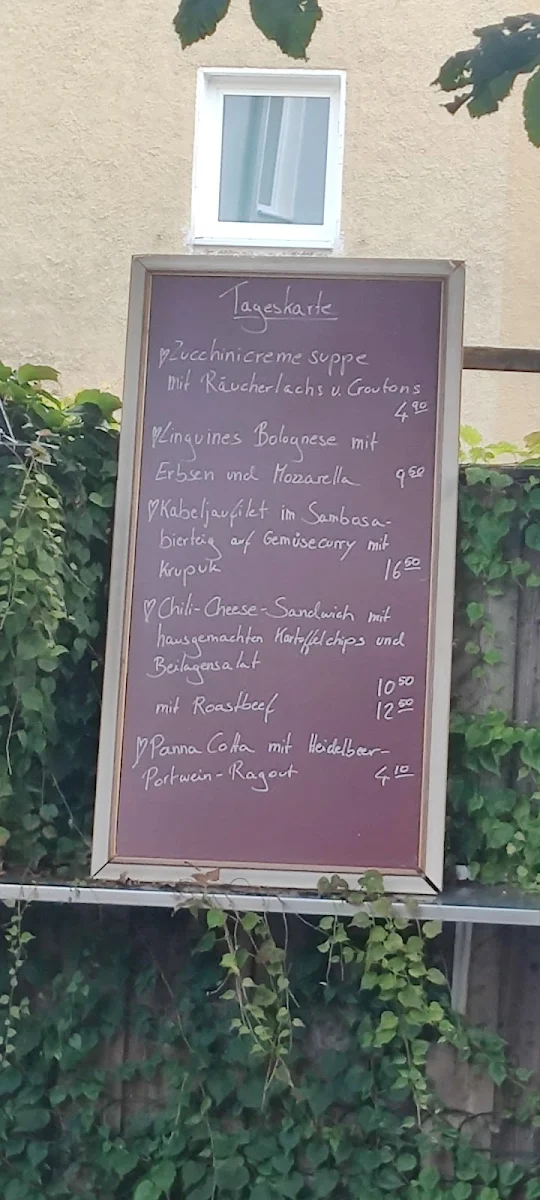 Tageskarte
Zucchinicremesuppe
mit Räucherlachs u. Croutons
4,90
Linguines Bolognese mit
Erbsen und Mozzarella 9,50
Kabeljaufilet im Sambosa-
bierteig auf Gemüsecurry mit
Krupuk 16,50
Chili-Cheese-Sandwich mit
hausgemachten Kartoffelchips und
Beilagensalat
10,50
mit Roastbeef 12,50
Panna Cotta mit Heidelbeer-
Portwein-Ragout 4,10